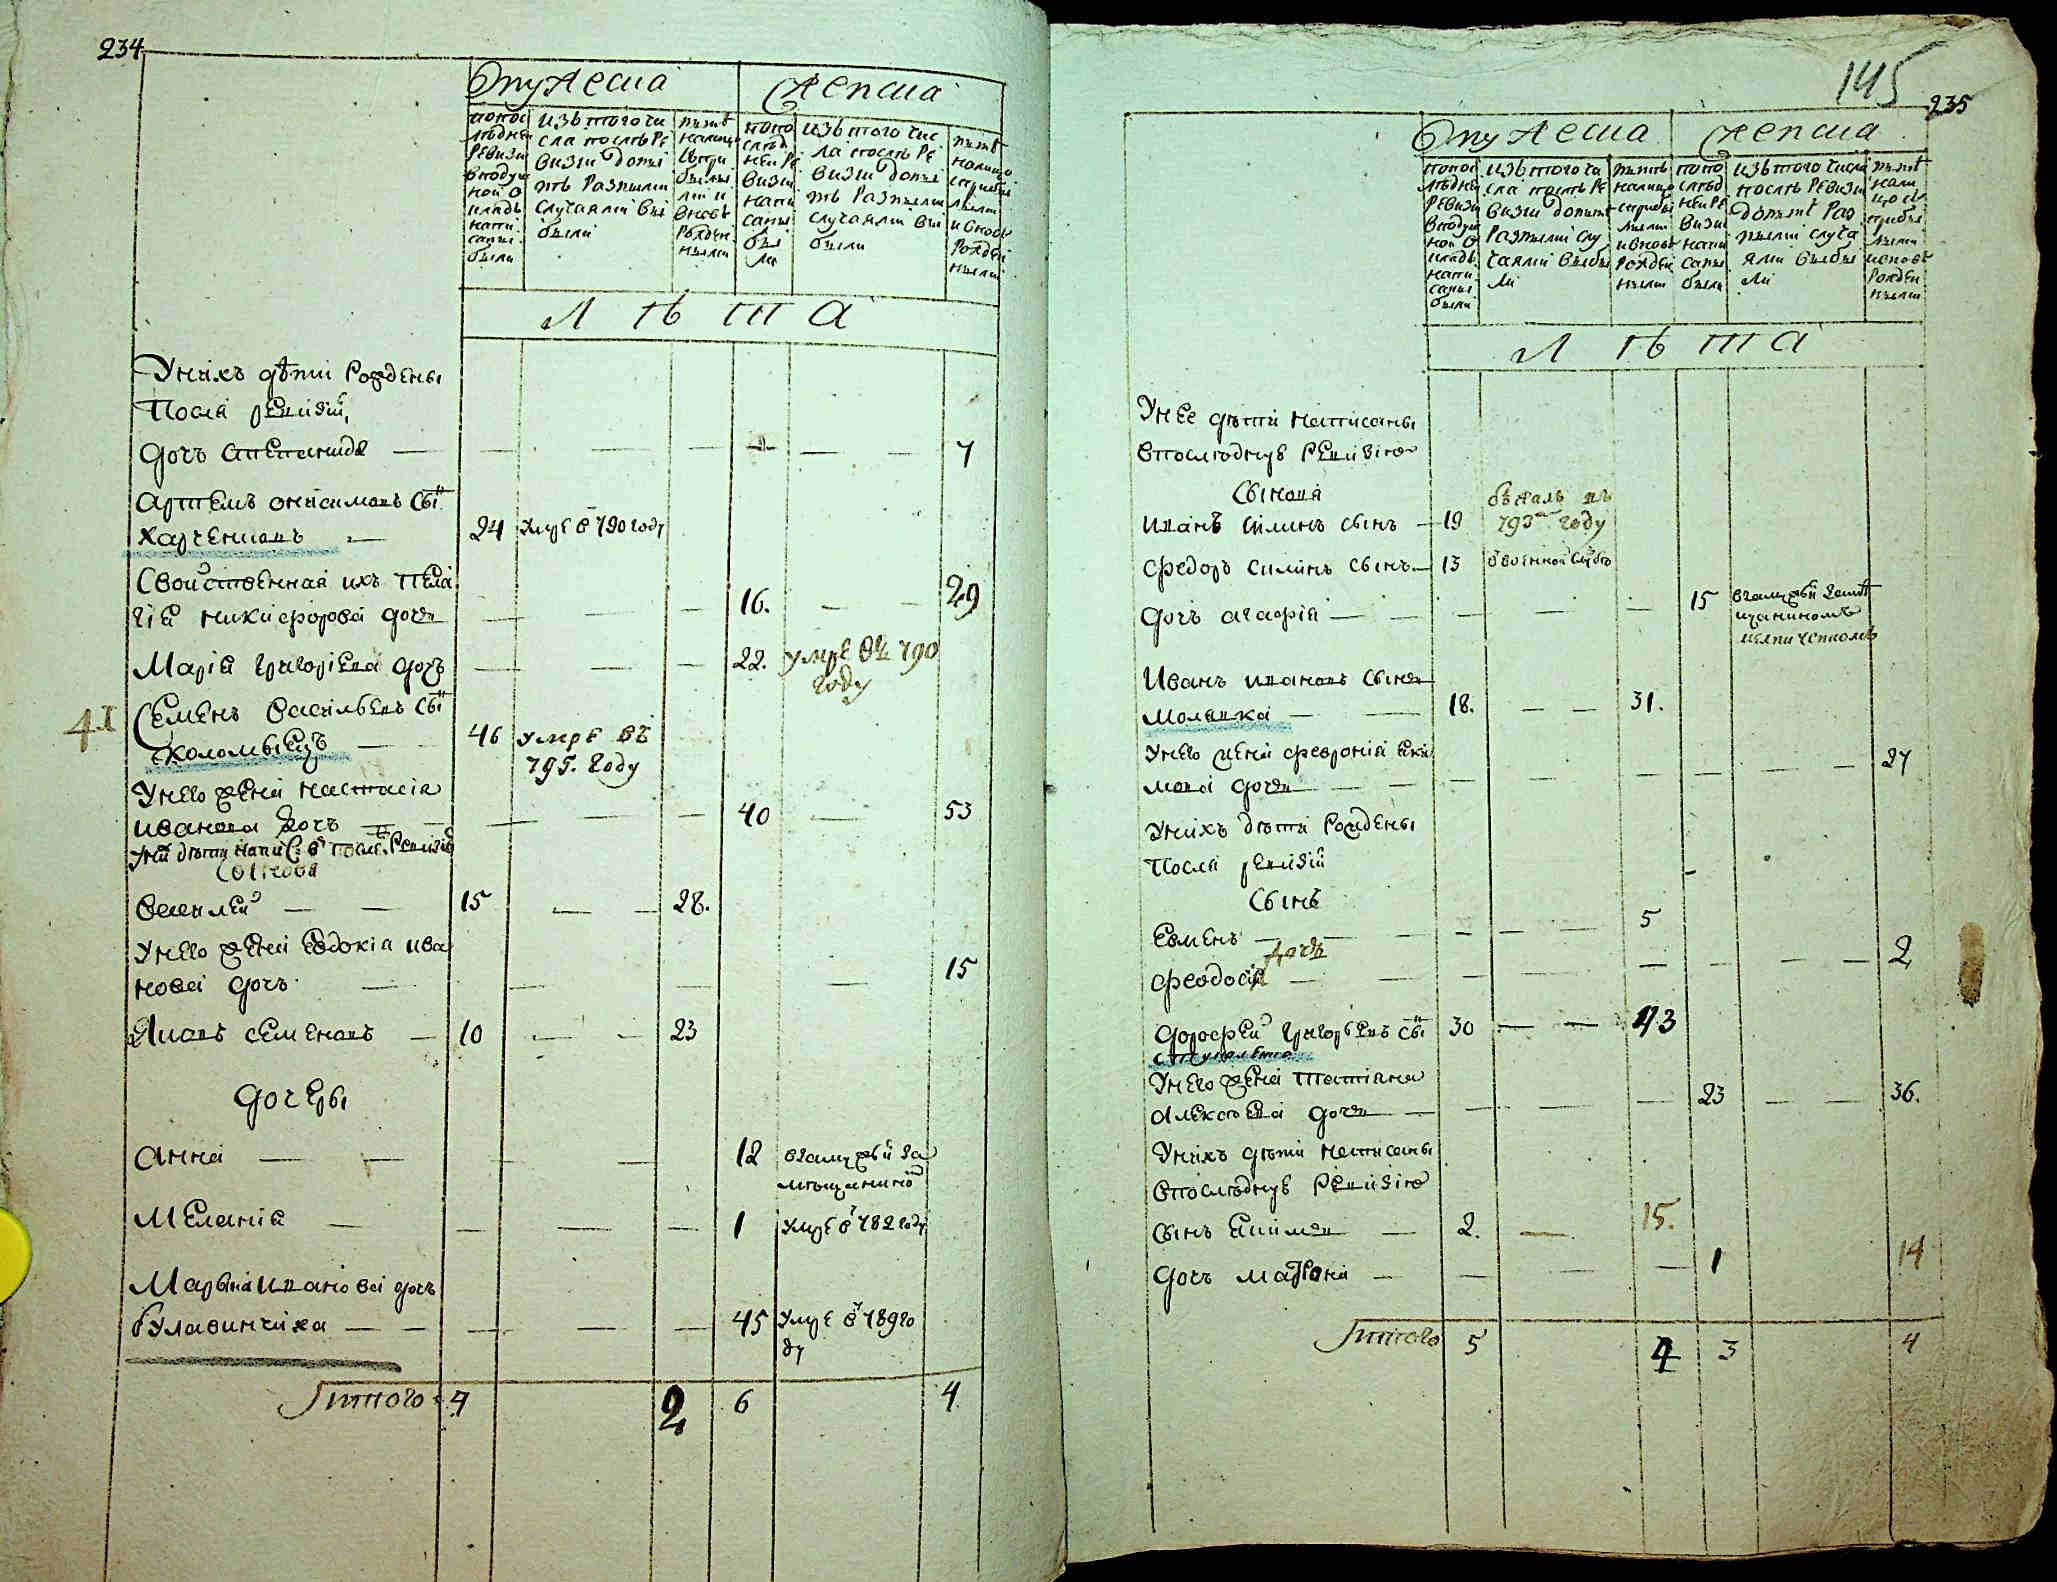 234
Мужеска
Женска
по последней ревизии в подушной оклад написаны были
изъ того числа после ревизии до ныне разными случаями выбыли
ныне налицо с прибылыми и вновь рожденными
по последней ревизии написаны были
изъ того числа после ревизии до ныне разными случаями выбыли
ныне налицо с прибылыми и вновь рожденными
Л ѣ т а
У нихъ дѣти рождены
После ревизiи
Дочь Степанида — — — — — — 7
Артемъ Онисимовъ сынъ
Харченковъ — 24 умре в 790 году
Свойственная ихъ Пела
гiя Никифорова дочь — — — 16. — — 29
Марiя Григорiева дочь — — — 22. умре въ 790
году
41
Семенъ Васильевъ сынъ
Коломыецъ — 46 умре въ
795. году
У него жена Настасiя
Иванова дочь — — — — 40 — 53
У них дѣти напис: в после: ревизiю
Сынова
Василей — — 15 — — 28.
У него жена Евдокiя Ива
нова дочь — — — — — 15
Яковъ Семеновъ — 10 — — 23
Дочери
Анна — — — — 12 в замужъи за
мещанино
Меланiя — — — — 1 умре в 782 году
Марья Иванова дочь
Булавинчиха — — — — — 45 умре в 789 го
ду
Итого 4 2 6 4
145
235
Мужеска
Женска
по последней ревизии в подушной оклад написаны были
изъ того числа после ревизии до ныне разными случаями выбыли
ныне налицо с прибылыми и вновь рожденными
по последней ревизии написаны были
изъ того числа после ревизии до ныне разными случаями выбыли
ныне налицо с прибылыми и вновь рожденными
Л ѣ т а
У нее дѣти написаны
в последнюю ревизiю
Сынова
Иванъ Силинъ сынъ — 19 бежалъ въ
793 году
Федоръ Силинъ сынъ — 13 в военной службе
Дочь Агафiя — — — — 15 в замужъи за мѣ
щаниномъ
Иванъ Ивановъ сынъ
Молявка — — 18. — — 31.
У него жена Феврония Яки
мова дочь — — — — — — — — 27
У нихъ дѣти рождены
После ревизiи
Сынъ
Евменъ — — — — — 5
дочь
Феодосiя — — — — — — — — 2
Дорофей Григорьевъ сынъ 30 — — 43
У него жена Татiана
Алексеева дочь — — — — 23 — — 36.
У нихъ дѣти написаны
в последнюю ревизiю
Сынъ Екимъ — 2. — 15.
Дочь Матрона — — — — 1 14
Итого 5 4 3 4